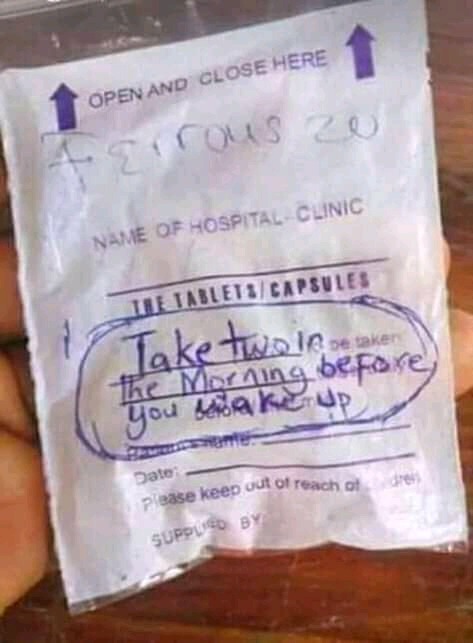 OPEN AND CLOSE HERE
Ferrous 20
NAME OF HOSPITAL-CLINIC
THE TABLETS/CAPSULES
Take two in be taken
the Morning before
you wake up
Date:
Please keep out of reach of
SUPPLIED BY: